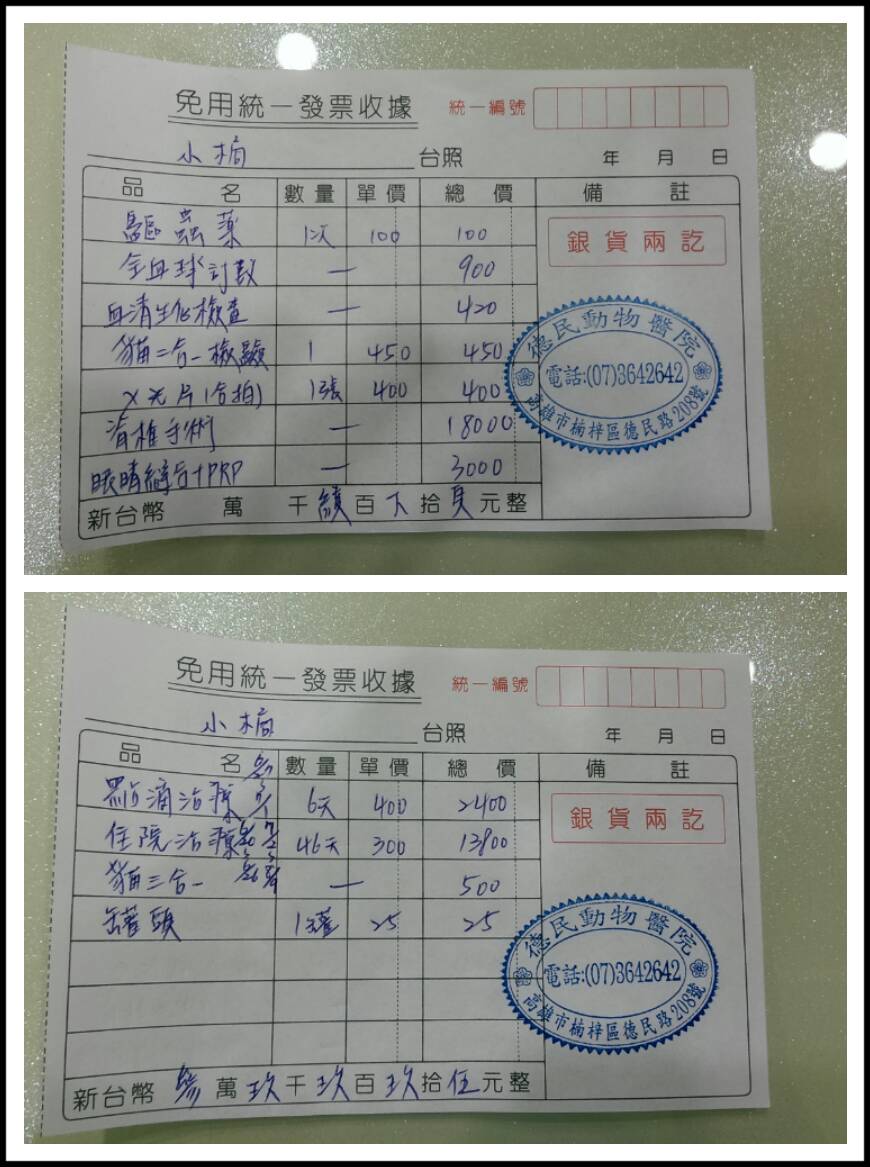 免用統一發票收據 統一編號
小楠 台照 年 月 日
品名 數量 單價 總價 備註
驅蟲藥 1次 100 100
銀貨兩訖
全血球計數 — 900
血清生化檢查 — 420
貓二合一檢驗 1 450 450
X光片(合拍) 1張 400 400
脊椎手術 — 18000
眼睛縫合+PRP — 3000
德民動物醫院
電話:(07)3642642
高雄市楠梓區德民路208號
新台幣 萬 千 續 百 下 拾 頁 元整
免用統一發票收據 統一編號
小楠 台照 年 月 日
品名 數量 單價 總價 備註
點滴治療 6天 400 2400
銀貨兩訖
住院治療 46天 300 13800
貓三合一 — 500
罐頭 1罐 25 25
德民動物醫院
電話:(07)3642642
高雄市楠梓區德民路208號
新台幣 參 萬 玖 千 玖 百 玖 拾 伍 元整